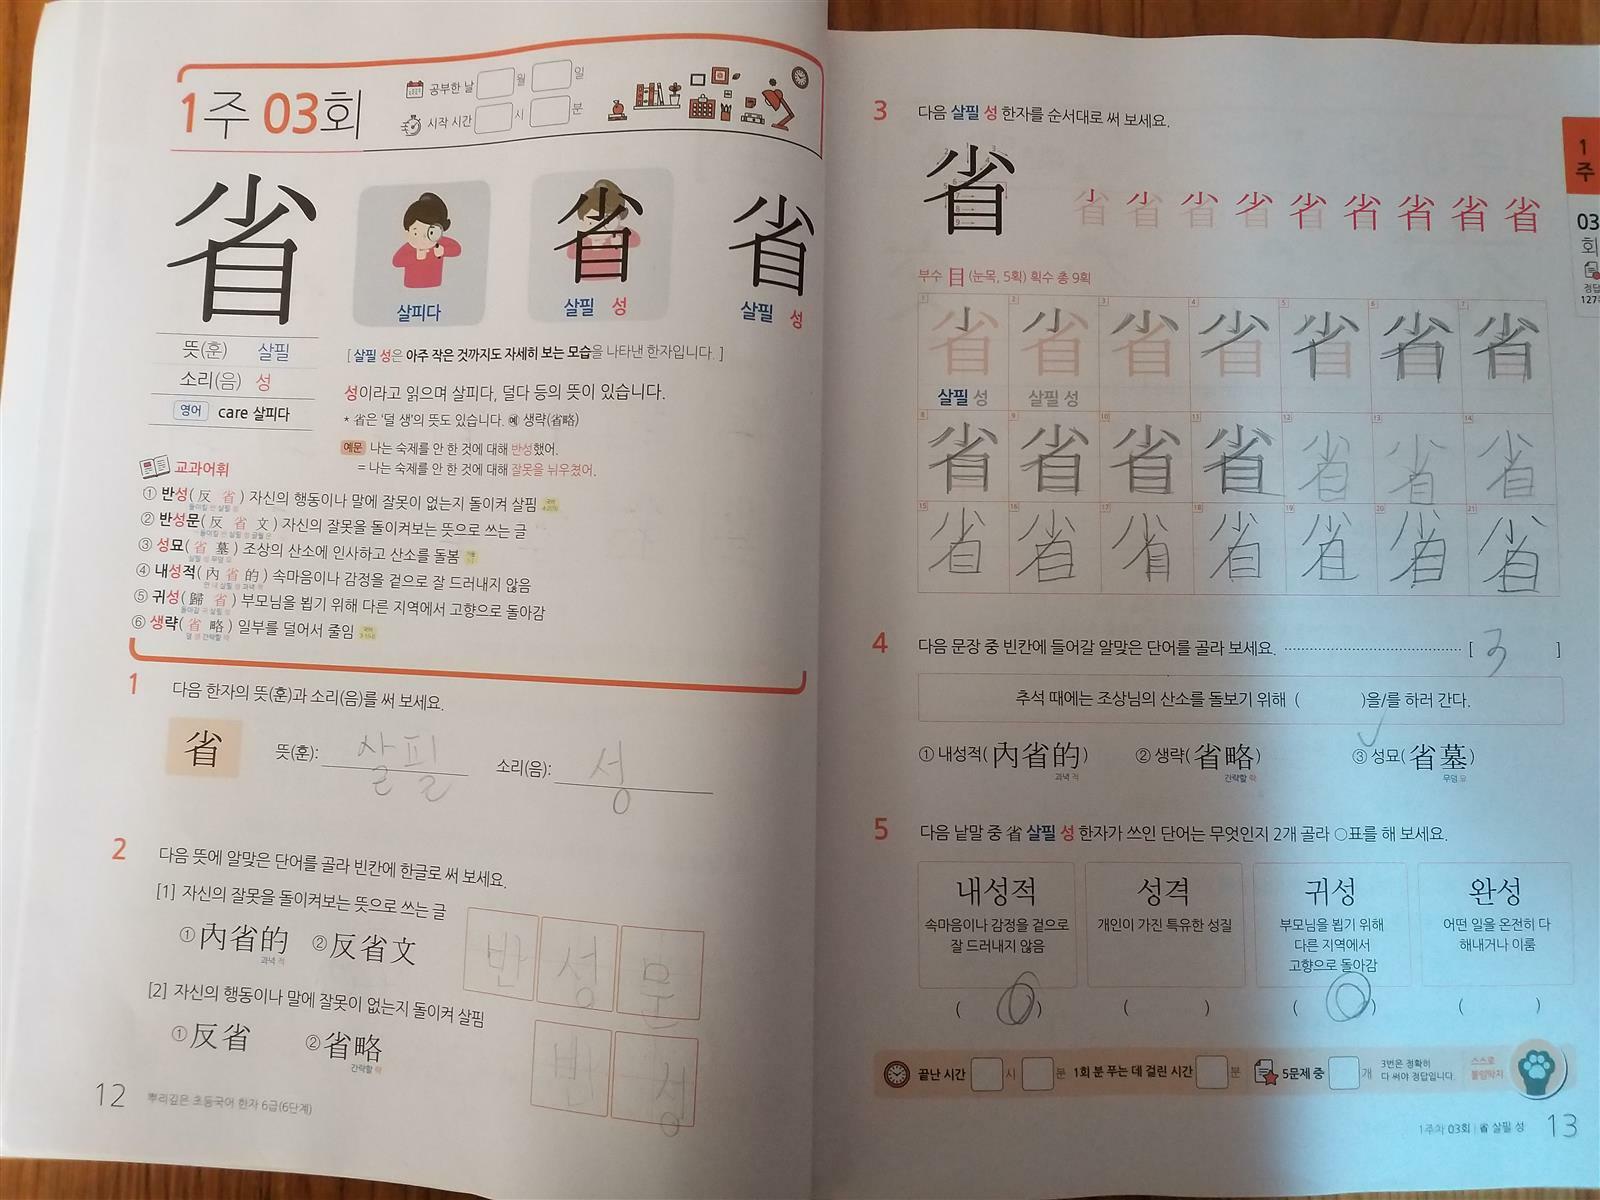 1주 03회
공부한 날 월 일
시작 시간 시 분
省
살피다
省
살필 성
省
살필 성
뜻(훈) 살필
소리(음) 성
영어 care 살피다
[ 살필 성은 아주 작은 것까지도 자세히 보는 모습을 나타낸 한자입니다. ]
성이라고 읽으며 살피다, 덜다 등의 뜻이 있습니다.
* 省은 '덜 생'의 뜻도 있습니다. 예 생략(省略)
예문 나는 숙제를 안 한 것에 대해 반성했어.
= 나는 숙제를 안 한 것에 대해 잘못을 뉘우쳤어.
교과어휘
① 반성(反 省) 자신의 행동이나 말에 잘못이 없는지 돌이켜 살핌
돌이킬 반 살필 성
② 반성문(反 省 文) 자신의 잘못을 돌이켜보는 뜻으로 쓰는 글
돌이킬 반 살필 성 글월 문
③ 성묘(省 墓) 조상의 산소에 인사하고 산소를 돌봄
살필 성 무덤 묘
④ 내성적(內 省 的) 속마음이나 감정을 겉으로 잘 드러내지 않음
안 내 살필 성 과녁 적
⑤ 귀성(歸 省) 부모님을 뵙기 위해 다른 지역에서 고향으로 돌아감
돌아갈 귀 살필 성
⑥ 생략(省 略) 일부를 덜어서 줄임
덜 생 간략할 략
1 다음 한자의 뜻(훈)과 소리(음)를 써 보세요.
省 뜻(훈): 살필 소리(음): 성
2 다음 뜻에 알맞은 단어를 골라 빈칸에 한글로 써 보세요.
[1] 자신의 잘못을 돌이켜보는 뜻으로 쓰는 글
① 內省的 ② 反省文 반 성 문
과녁 적
[2] 자신의 행동이나 말에 잘못이 없는지 돌이켜 살핌
① 反省 ② 省略 반 성
간략할 략
12 뿌리깊은 초등국어 한자 6급(6단계)
3 다음 살필 성 한자를 순서대로 써 보세요.
省
省 省 省 省 省 省 省 省 省
부수 目 (눈목, 5획) 획수 총 9획
1 2 3 4 5 6 7
省 省 省 省 省 省 省
살필 성 살필 성
8 9 10 11 12 13 14
省 省 省 省 省 省 省
15 16 17 18 19 20 21
省 省 省 省 省 省 省
4 다음 문장 중 빈칸에 들어갈 알맞은 단어를 골라 보세요. [ 3 ]
추석 때에는 조상님의 산소를 돌보기 위해 ( )을/를 하러 간다.
① 내성적(內省的) ② 생략(省略) ③ 성묘(省墓)
과녁 적 간략할 략 무덤 묘
5 다음 낱말 중 省 살필 성 한자가 쓰인 단어는 무엇인지 2개 골라 ○표를 해 보세요.
내성적
속마음이나 감정을 겉으로
잘 드러내지 않음
( ○ )
성격
개인이 가진 특유한 성질
( )
귀성
부모님을 뵙기 위해
다른 지역에서
고향으로 돌아감
( ○ )
완성
어떤 일을 온전히 다
해내거나 이룸
( )
끝난 시간 시 분 1회 분 푸는 데 걸린 시간 분 5문제 중 개
3번은 정확히
다 써야 정답입니다.
스스로
붙임딱지
1주차 03회 | 省 살필 성 13
1
주
03
회
정답
127쪽